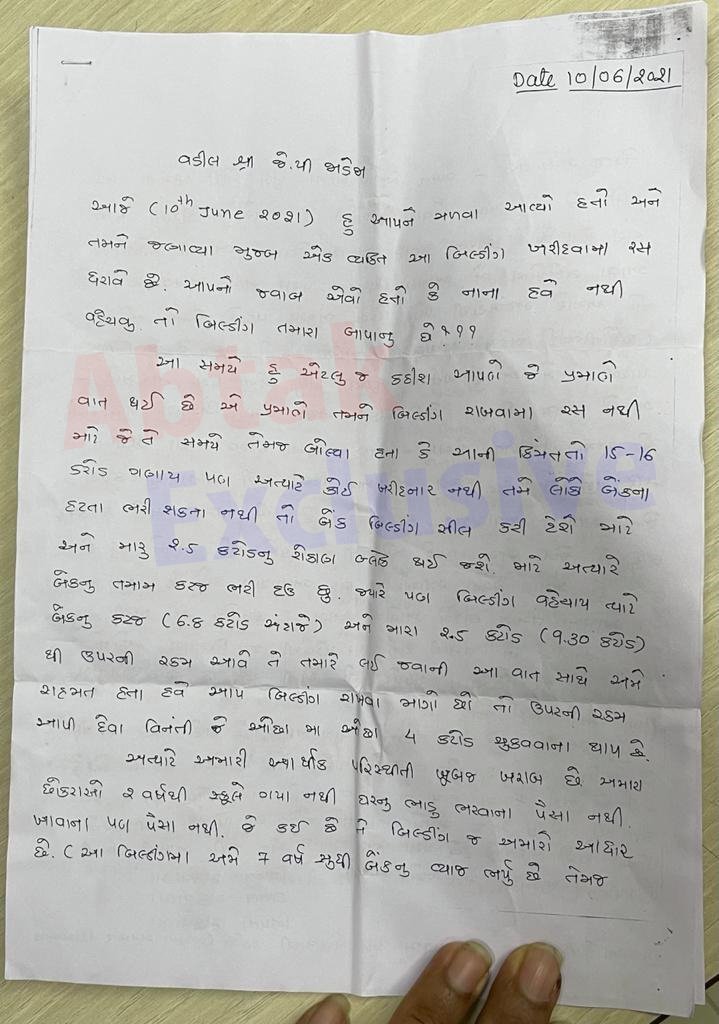 Date 10/06/2021
વડીલ શ્રી જે.પી જાડેજા
આજે (10th June 2021) હુ આપને મળવા આવ્યો હતો અને
તમને જણાવ્યા મુજબ એક વ્યકિત આ બિલ્ડીંગ ખરીદવામા રસ
ધરાવે છે. આપનો જવાબ એવો હતો કે નાના હવે નથી
વહેચવુ. તો બિલ્ડીંગ તમારા બાપાનુ છે???
આ સમયે હુ એટલુ જ કહીશ આપણે જે પ્રમાણે
વાત થઈ છે એ પ્રમાણે તમને બિલ્ડીંગ રાખવામા રસ નથી
માટે જે તે સમયે તેમજ બોલ્યા હતા કે આની કિંમત તો 15-16
કરોડ ગણાય પણ અત્યારે કોઈ ખરીદનાર નથી તમે લોકો બેંકના
હપ્તા ભરી શકતા નથી તો બેંક બિલ્ડીંગ સીલ કરી દેશે માટે
અને મારુ 2.5 કરોડનુ રોકાણ બ્લોક થઈ જશે. માટે અત્યારે
બેંકનુ તમામ કરજ ભરી દઉ છુ. જ્યારે પણ બિલ્ડીંગ વહેચાય ત્યારે
બેંકનુ કરજ (6.8 કરોડ અંદાજે) અને મારા 2.5 કરોડ (9.30 કરોડ)
થી ઉપરની રકમ આવે તે તમારે લઈ જવાની આ વાત સાથે અમે
સહમત હતા હવે આપ બિલ્ડીંગ રાખવા માગો છો તો ઉપરની રકમ
આપી દેવા વિનંતી જે ઓછા મા ઓછા 4 કરોડ ચુકવવાના થાય છે.
અત્યારે અમારી આર્થીક પરિસ્થીતી ખુબજ ખરાબ છે. અમારા
છોકરાઓ 2 વર્ષથી સ્કુલે ગયા નથી ઘરનુ ભાડુ ભરવાના પૈસા નથી.
ખાવાના પણ પૈસા નથી. જે કઈ છે તે બિલ્ડીંગ જ અમારો આધાર
છે. (આ બિલ્ડીંગમા અમે 7 વર્ષ સુધી બેંકનુ વ્યાજ ભર્યુ છે તેમજ
Abtak
Exclusive